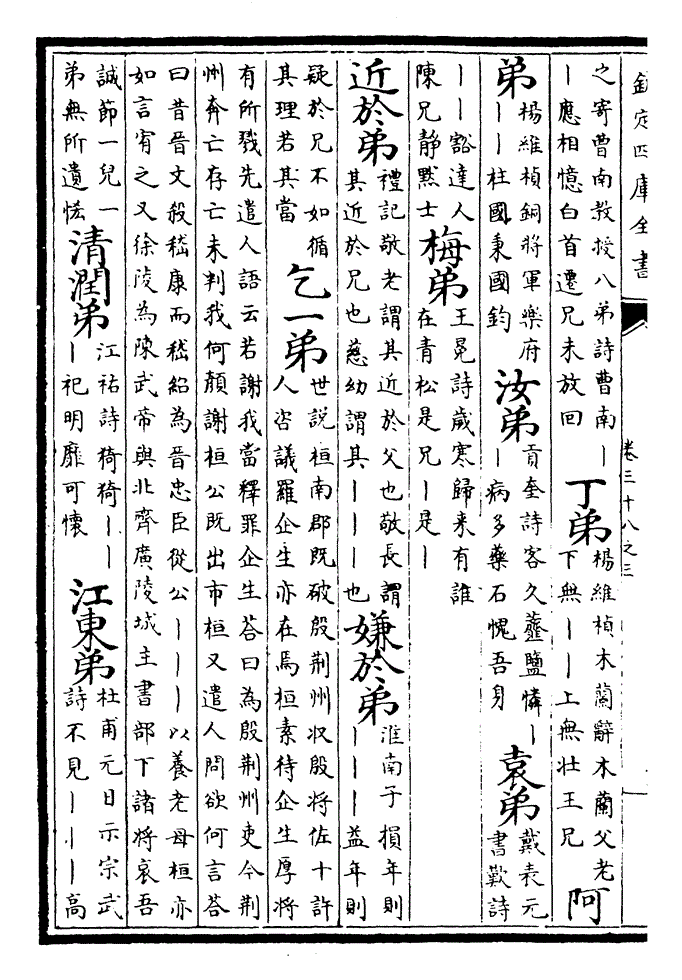 欽定四庫全書 卷三十八之三
之寄曹南教授八弟詩曹南丨
丨應相憶白首遷兄未放回
丁弟
楊維楨木蘭辭木蘭父老
下無丨丨上無壯王兄
阿
弟
楊維楨銅將軍樂府
丨丨柱國秉國鈞
汝弟
貢奎詩客久虀鹽憐丨
丨病多藥石愧吾身
袁弟
戴表元
書歎詩
丨丨豁達人
陳兄靜默士
梅弟
王冕詩歲寒歸来有誰
在青松是兄丨是丨
近於弟
禮記敬老謂其近於父也敬長謂
其近於兄也慈幼謂其丨丨丨也
嫌於弟
淮南子損年則
丨丨丨益年則
疑於兄不如循
其理若其當
乞一弟
世説桓南郡既破殷荆州収殷将佐十許
人咨議羅企生亦在焉桓素待企生厚将
有所戮先遣人語云若謝我當釋罪企生答曰為殷荆州吏今荆
州奔亡存亡未判我何顔謝桓公既出市桓又遣人問欲何言答
曰昔晉文殺嵇康而嵇紹為晉忠臣從公丨丨丨以養老母桓亦
如言宥之又徐陵為陳武帝與北齊廣陵城主書部下諸将哀吾
誠節一兒一
弟無所遺恡
清潤弟
江祐詩猗猗丨丨
丨祀明靡可懷
江東弟
杜甫元日示宗武
詩不見丨丨丨高